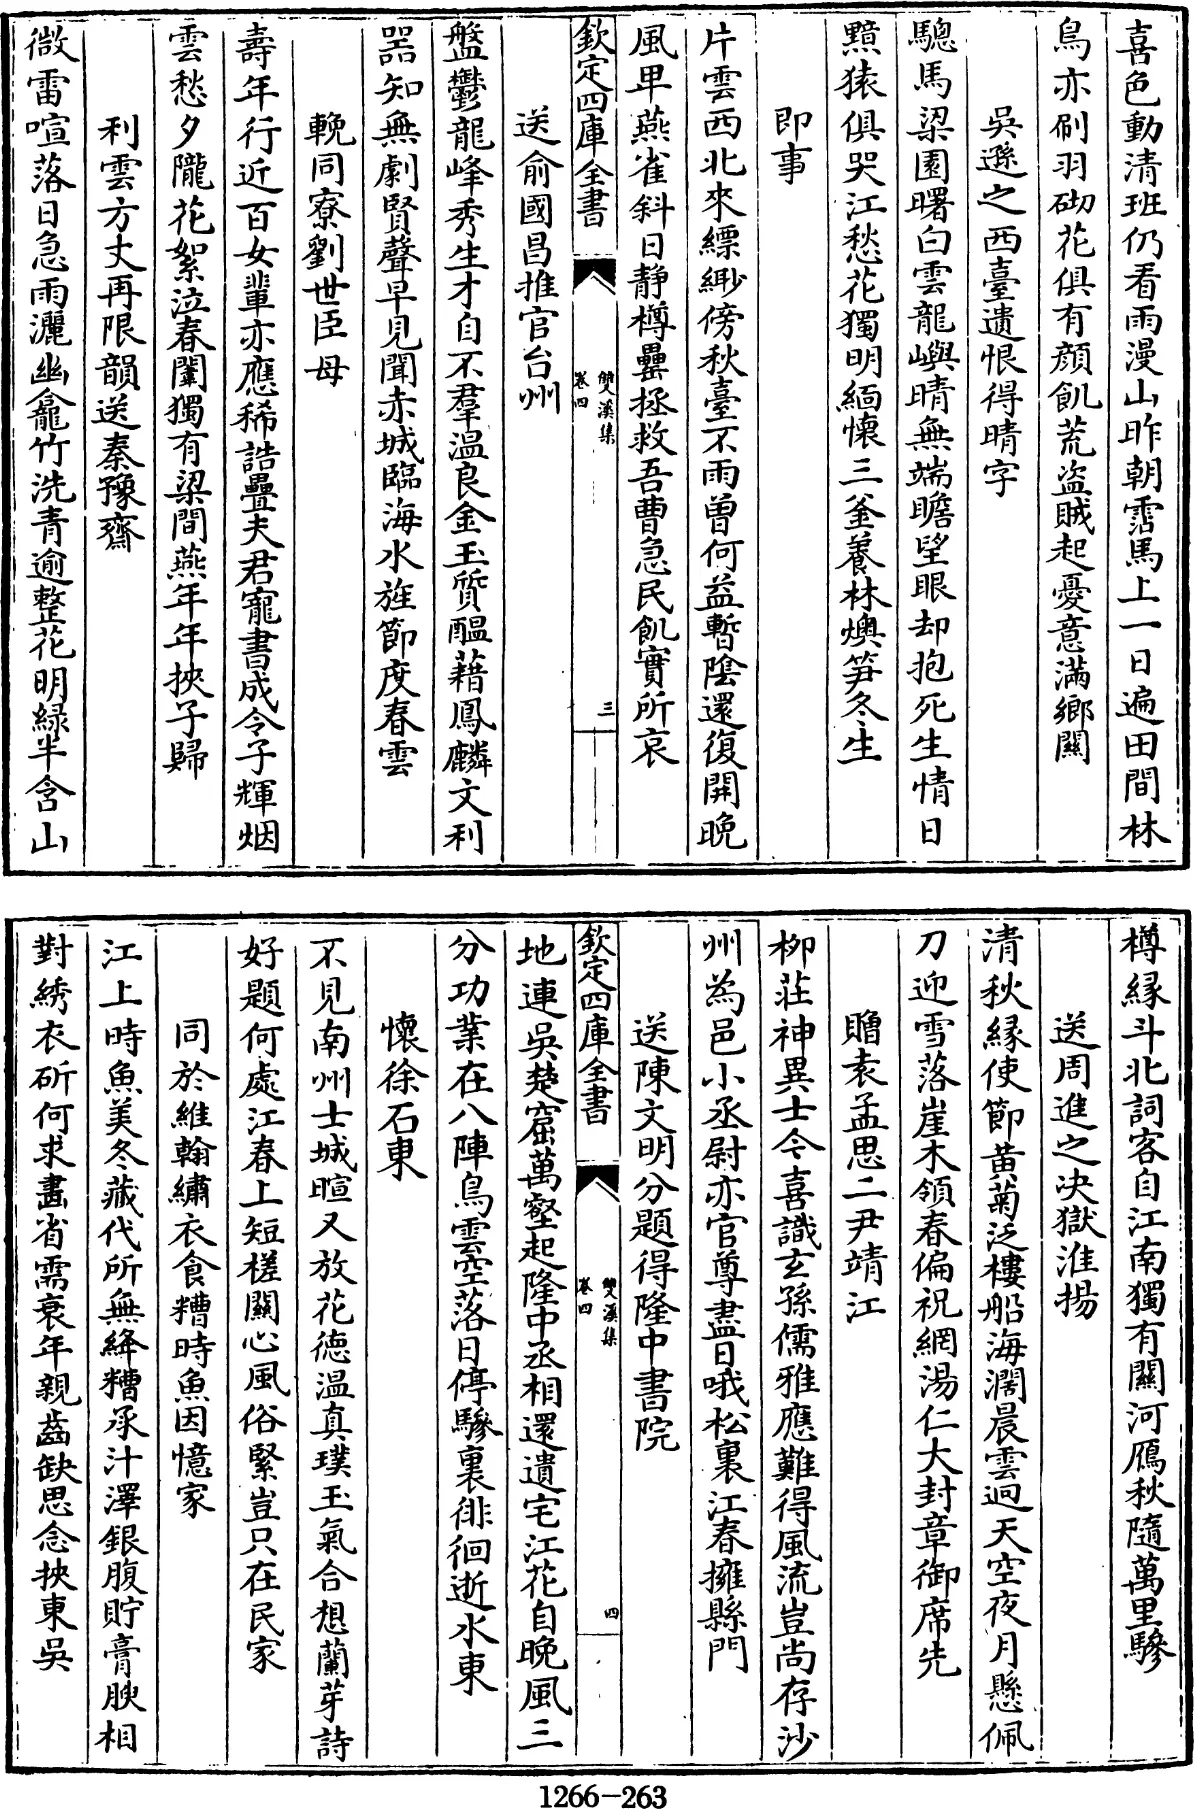 喜色動清班仍看雨漫山昨朝霑馬上一日遍田間林
鳥亦刷羽砌花俱有顔飢荒盗賊起憂意滿鄉關
吳遜之西臺遺恨得晴字
驄馬梁園曙白雲龍嶼晴無端瞻望眼却抱死生情日
黯猿俱哭江愁花獨明緬懷三釜養林燠笋冬生
即事
片雲西北來縹緲傍秋臺不雨曾何益暫陰還復開晩
風早燕雀斜日静樽罍拯救吾曹急民飢實所哀
欽定四庫全書
雙溪集
卷四
三
送俞國昌推官台州
盤鬱龍峰秀生才自不羣温良金玉質醖藉鳳麟文利
噐知無劇賢聲早見聞赤城臨海水旌節度春雲
輓同寮劉世臣母
壽年行近百女輩亦應稀誥疊夫君寵書成令子輝烟
雲愁夕隴花絮泣春闈獨有梁間燕年年挾子歸
利雲方丈再限韻送秦豫齋
微雷喧落日急雨灑幽龕竹洗青逾整花明緑半含山
樽緣斗北詞客自江南獨有關河鴈秋隨萬里驂
送周進之决獄淮揚
清秋緣使節黄菊泛樓船海濶晨雲迥天空夜月懸佩
刀迎雪落崖木領春偏祝網湯仁大封章御席先
贈袁孟思二尹靖江
柳莊神異士今喜識玄孫儒雅應難得風流豈尚存沙
州為邑小丞尉亦官尊盡日哦松裏江春擁縣門
送陳文明分題得隆中書院
欽定四庫全書
雙溪集
卷四
四
地連吳楚窟萬壑起隆中丞相還遺宅江花自晩風三
分功業在八陣鳥雲空落日停驂裏徘徊逝水東
懷徐石東
不見南州士城暄又放花德温真璞玉氣合想蘭芽詩
好題何處江春上短槎關心風俗緊豈只在民家
同於維翰繡衣食糟時魚因憶家
江上時魚美冬藏代所無絳糟承汁澤銀腹貯膏腴相
對綉衣斫何求畫省需衰年親齒缺思念挾東吳
1266-263